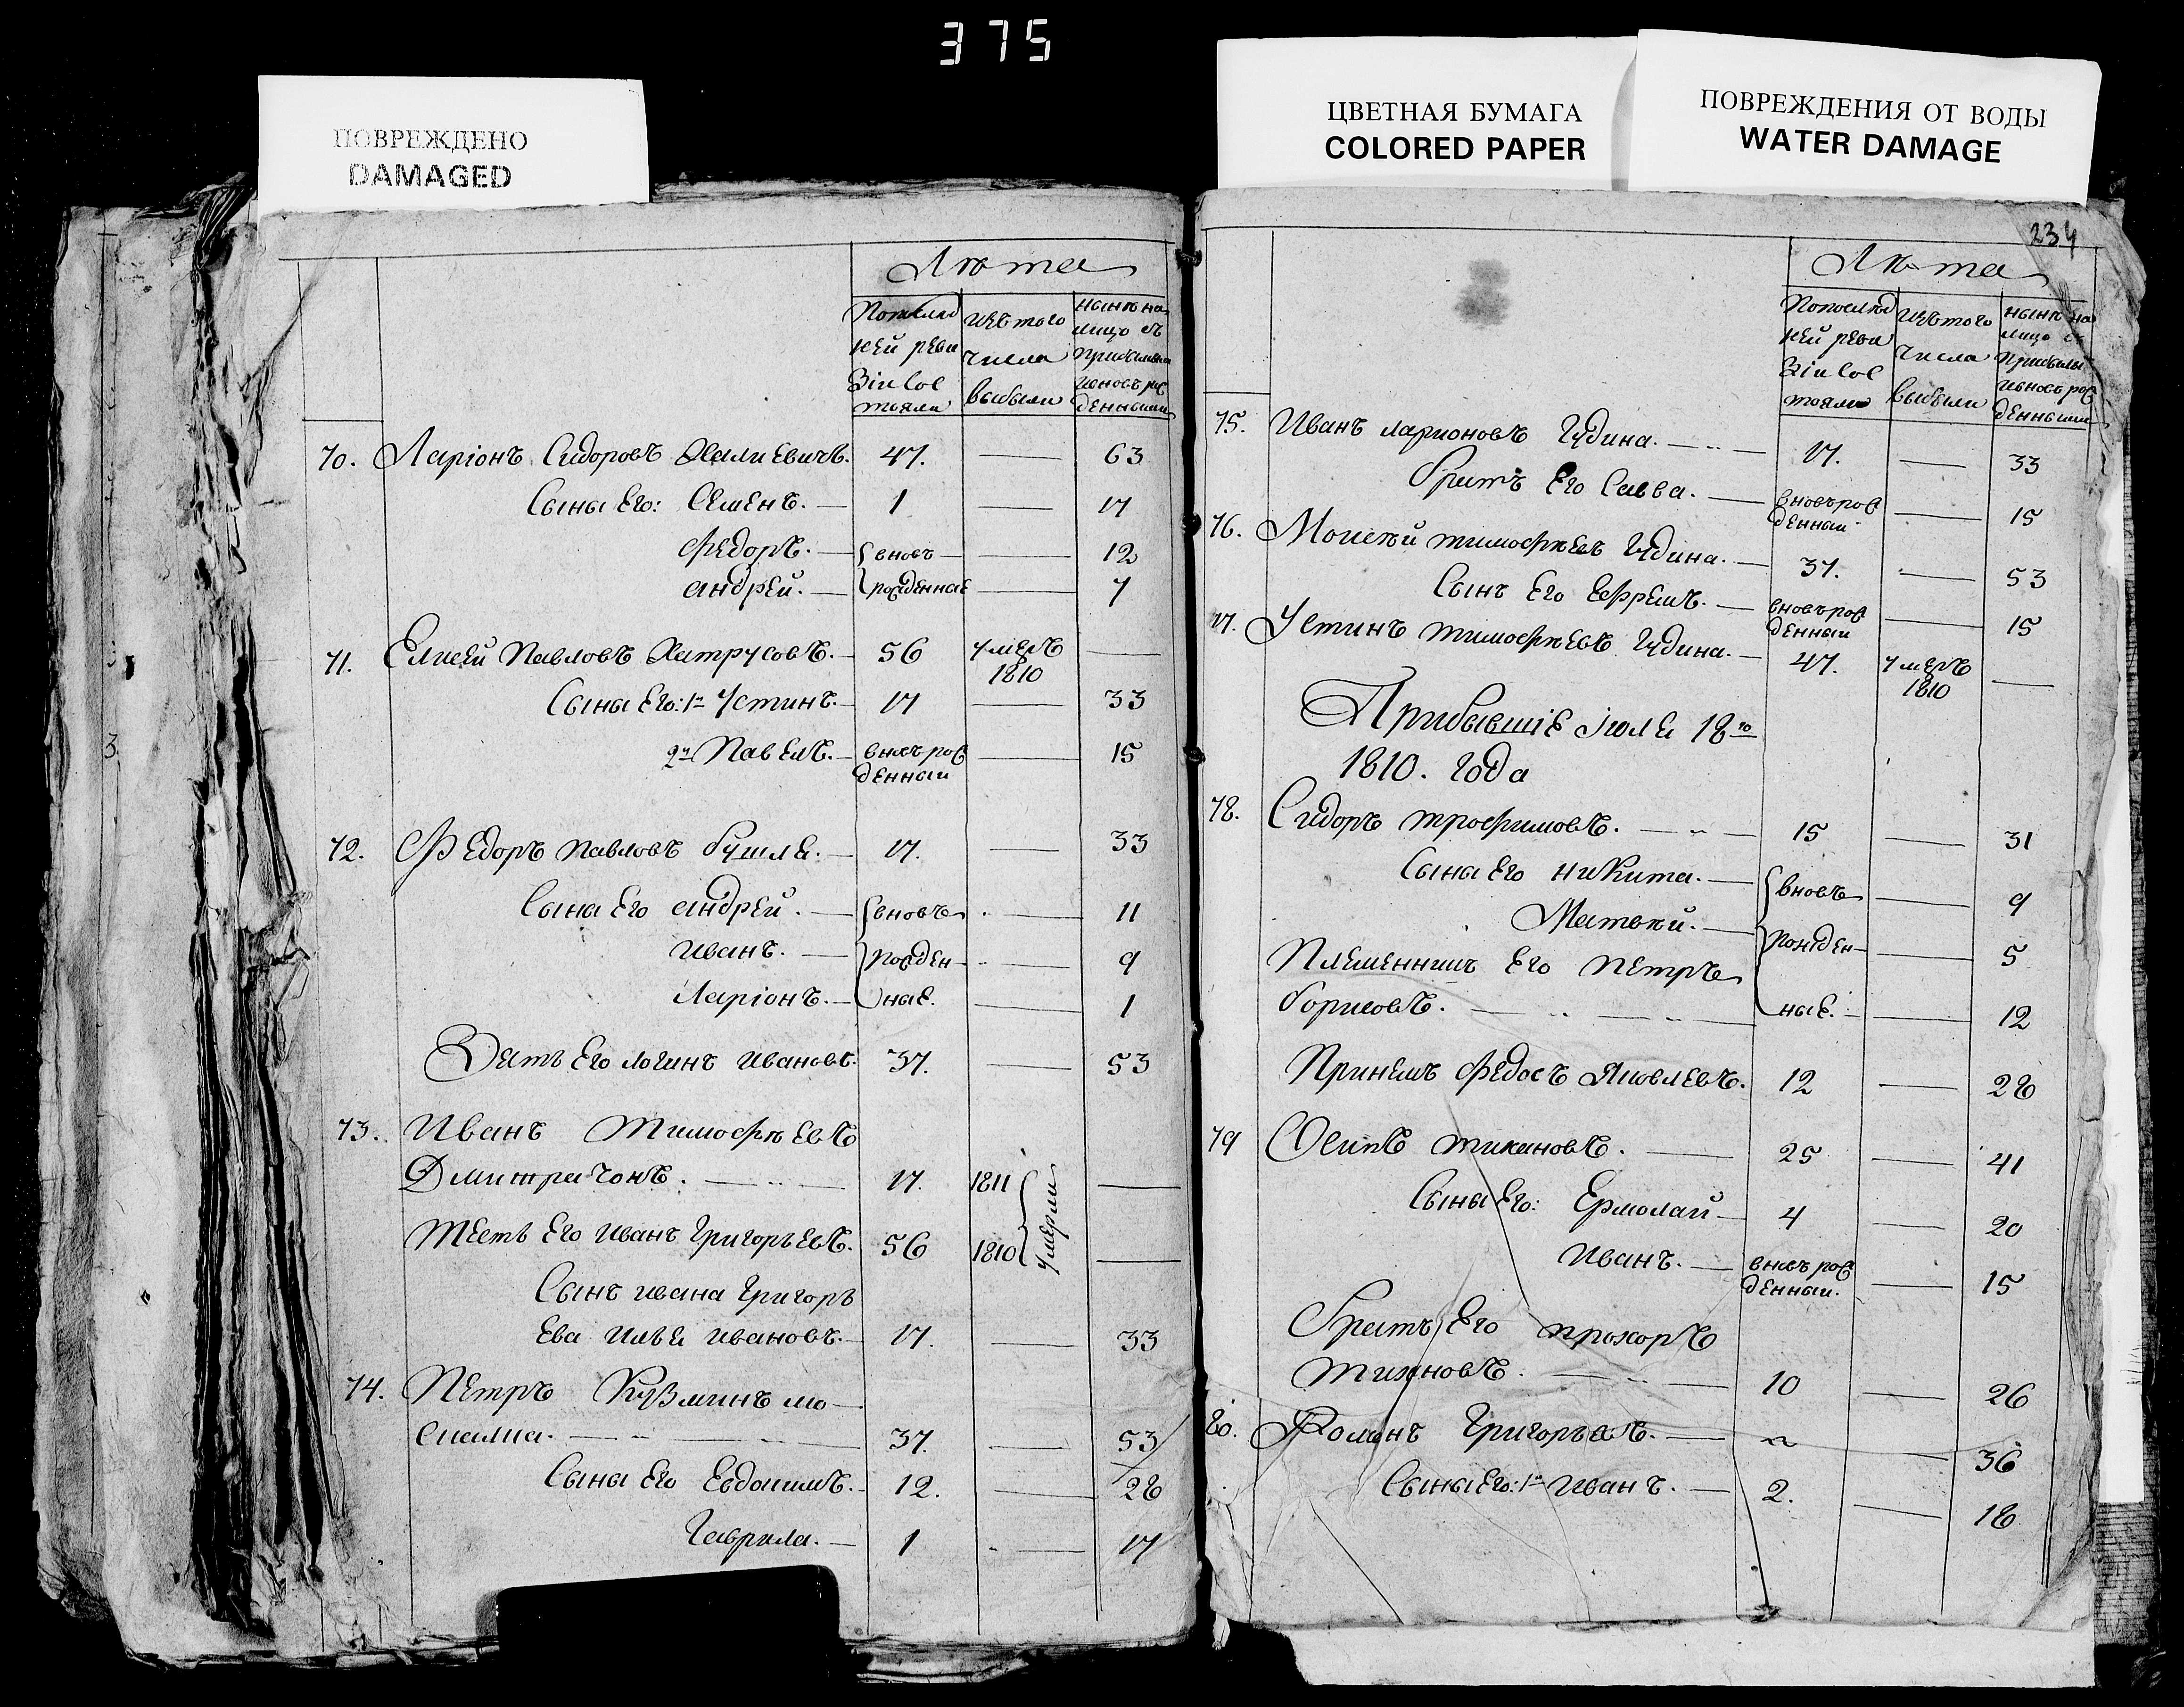 375
ПОВРЕЖДЕНО
DAMAGED
ЦВЕТНАЯ БУМАГА
COLORED PAPER
ПОВРЕЖДЕНИЯ ОТ ВОДЫ
WATER DAMAGE
Лѣта
Попослѣд изъ того нынѣ на
ней реви числа лицо съ
зіи сос выбыли прибылыми
тояли и вновь рож
денными
70. Ларіонъ Сидоровъ 47. — 63
Сыны Его: Семенъ. — 1 — 17
Федоръ. — вновь — 12
андрей. — рожденные — 7
71. Елисей Павловъ Хатрусовъ. — 56 умеръ —
1810
Сыны Его: 1й Устинъ. — 17 — 33
2й Павелъ. — вновь рож — 15
денный
72. Федоръ Павловъ Бушля. — 17. — 33
Сына Его андрей. — вновь — 11
иванъ. — рожден — 9
Ларіонъ. — ные. — 1
Зять Его логинъ ивановъ. 37. — 53
73. Иванъ Тимофѣевъ
Дмитрачонъ. — 17. 1811 умерли —
Тесть Его иванъ Григорьевъ. 56 1810 —
Сынъ ивана Григорь
Ева илья ивановъ. — 17. — 33
74. Петръ Кузминъ мо
сиалма. — 37. — 53
Сыны Его Евдокимъ. — 12. — 28
Гаврила. — 1 — 17
234
Лѣта
Попослѣд изъ того нынѣ на
ней реви числа лицо съ
зіи сос выбыли прибылыми
тояли и вновь рож
денными
75. Иванъ ларионовъ Гудина. — 17. — 33
братъ Его Савва. — вновь рож — 15
денный
76. Моисѣй тимофѣевъ Гудина. — 37. — 53
Сынъ Его Ефремъ. — вновь рож — 15
денный
77. Устинъ тимофѣевъ Гудина. — 47. умеръ —
1810
Прибывшіе іюля 18го
1810. года
78. Сидоръ трофимовъ. — 15 — 31
Сына Его никита. — вновь — 9
Матвѣй. — рожден — 5
Племенникъ Его Петръ
борисовъ. — ные. — 12
Принемъ Федосъ Яковлевъ. 12 — 28
79 Осипъ тихановъ. — 25 — 41
Сыны Его: Ермолай — 4 — 20
иванъ. — вновь рож — 15
денный.
братъ Его прохоръ
тихновъ. — 10 — 26
80. Романъ Григорьевъ. — — 36
Сыны Его: 1й иванъ. — 2. — 18